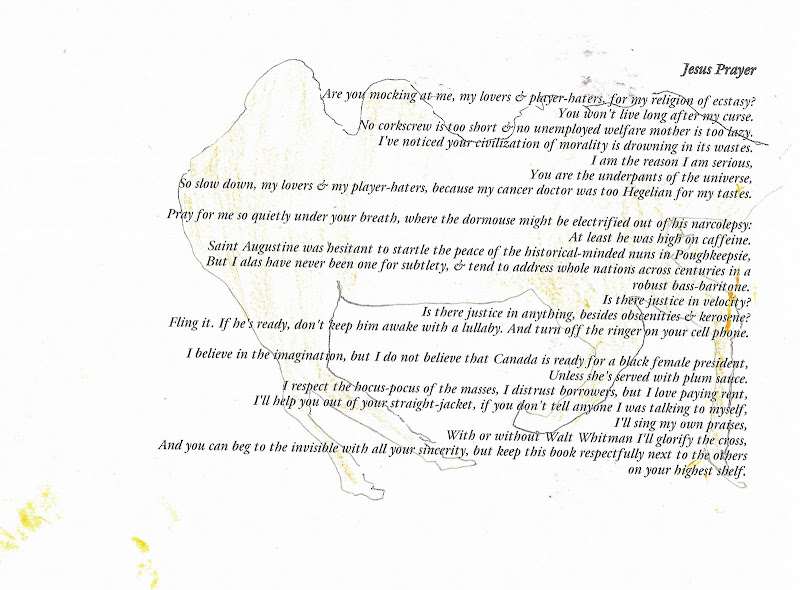 Jesus Prayer
Are you mocking at me, my lovers & player-haters, for my religion of ecstasy?
You won't live long after my curse.
No corkscrew is too short & no unemployed welfare mother is too lazy.
I've noticed your civilization of morality is drowning in its wastes.
I am the reason I am serious,
You are the underpants of the universe,
So slow down, my lovers & my player-haters, because my cancer doctor was too Hegelian for my tastes.
Pray for me so quietly under your breath, where the dormouse might be electrified out of his narcolepsy:
At least he was high on caffeine.
Saint Augustine was hesitant to startle the peace of the historical-minded nuns in Poughkeepsie,
But I alas have never been one for subtlety, & tend to address whole nations across centuries in a
robust bass-baritone.
Is there justice in velocity?
Is there justice in anything, besides obscenities & kerosene?
Fling it. If he's ready, don't keep him awake with a lullaby. And turn off the ringer on your cell phone.
I believe in the imagination, but I do not believe that Canada is ready for a black female president,
Unless she's served with plum sauce.
I respect the hocus-pocus of the masses, I distrust borrowers, but I love paying rent,
I'll help you out of your straight-jacket, if you don't tell anyone I was talking to myself,
I'll sing my own praises,
With or without Walt Whitman I'll glorify the cross,
And you can beg to the invisible with all your sincerity, but keep this book respectfully next to the others
on your highest shelf.